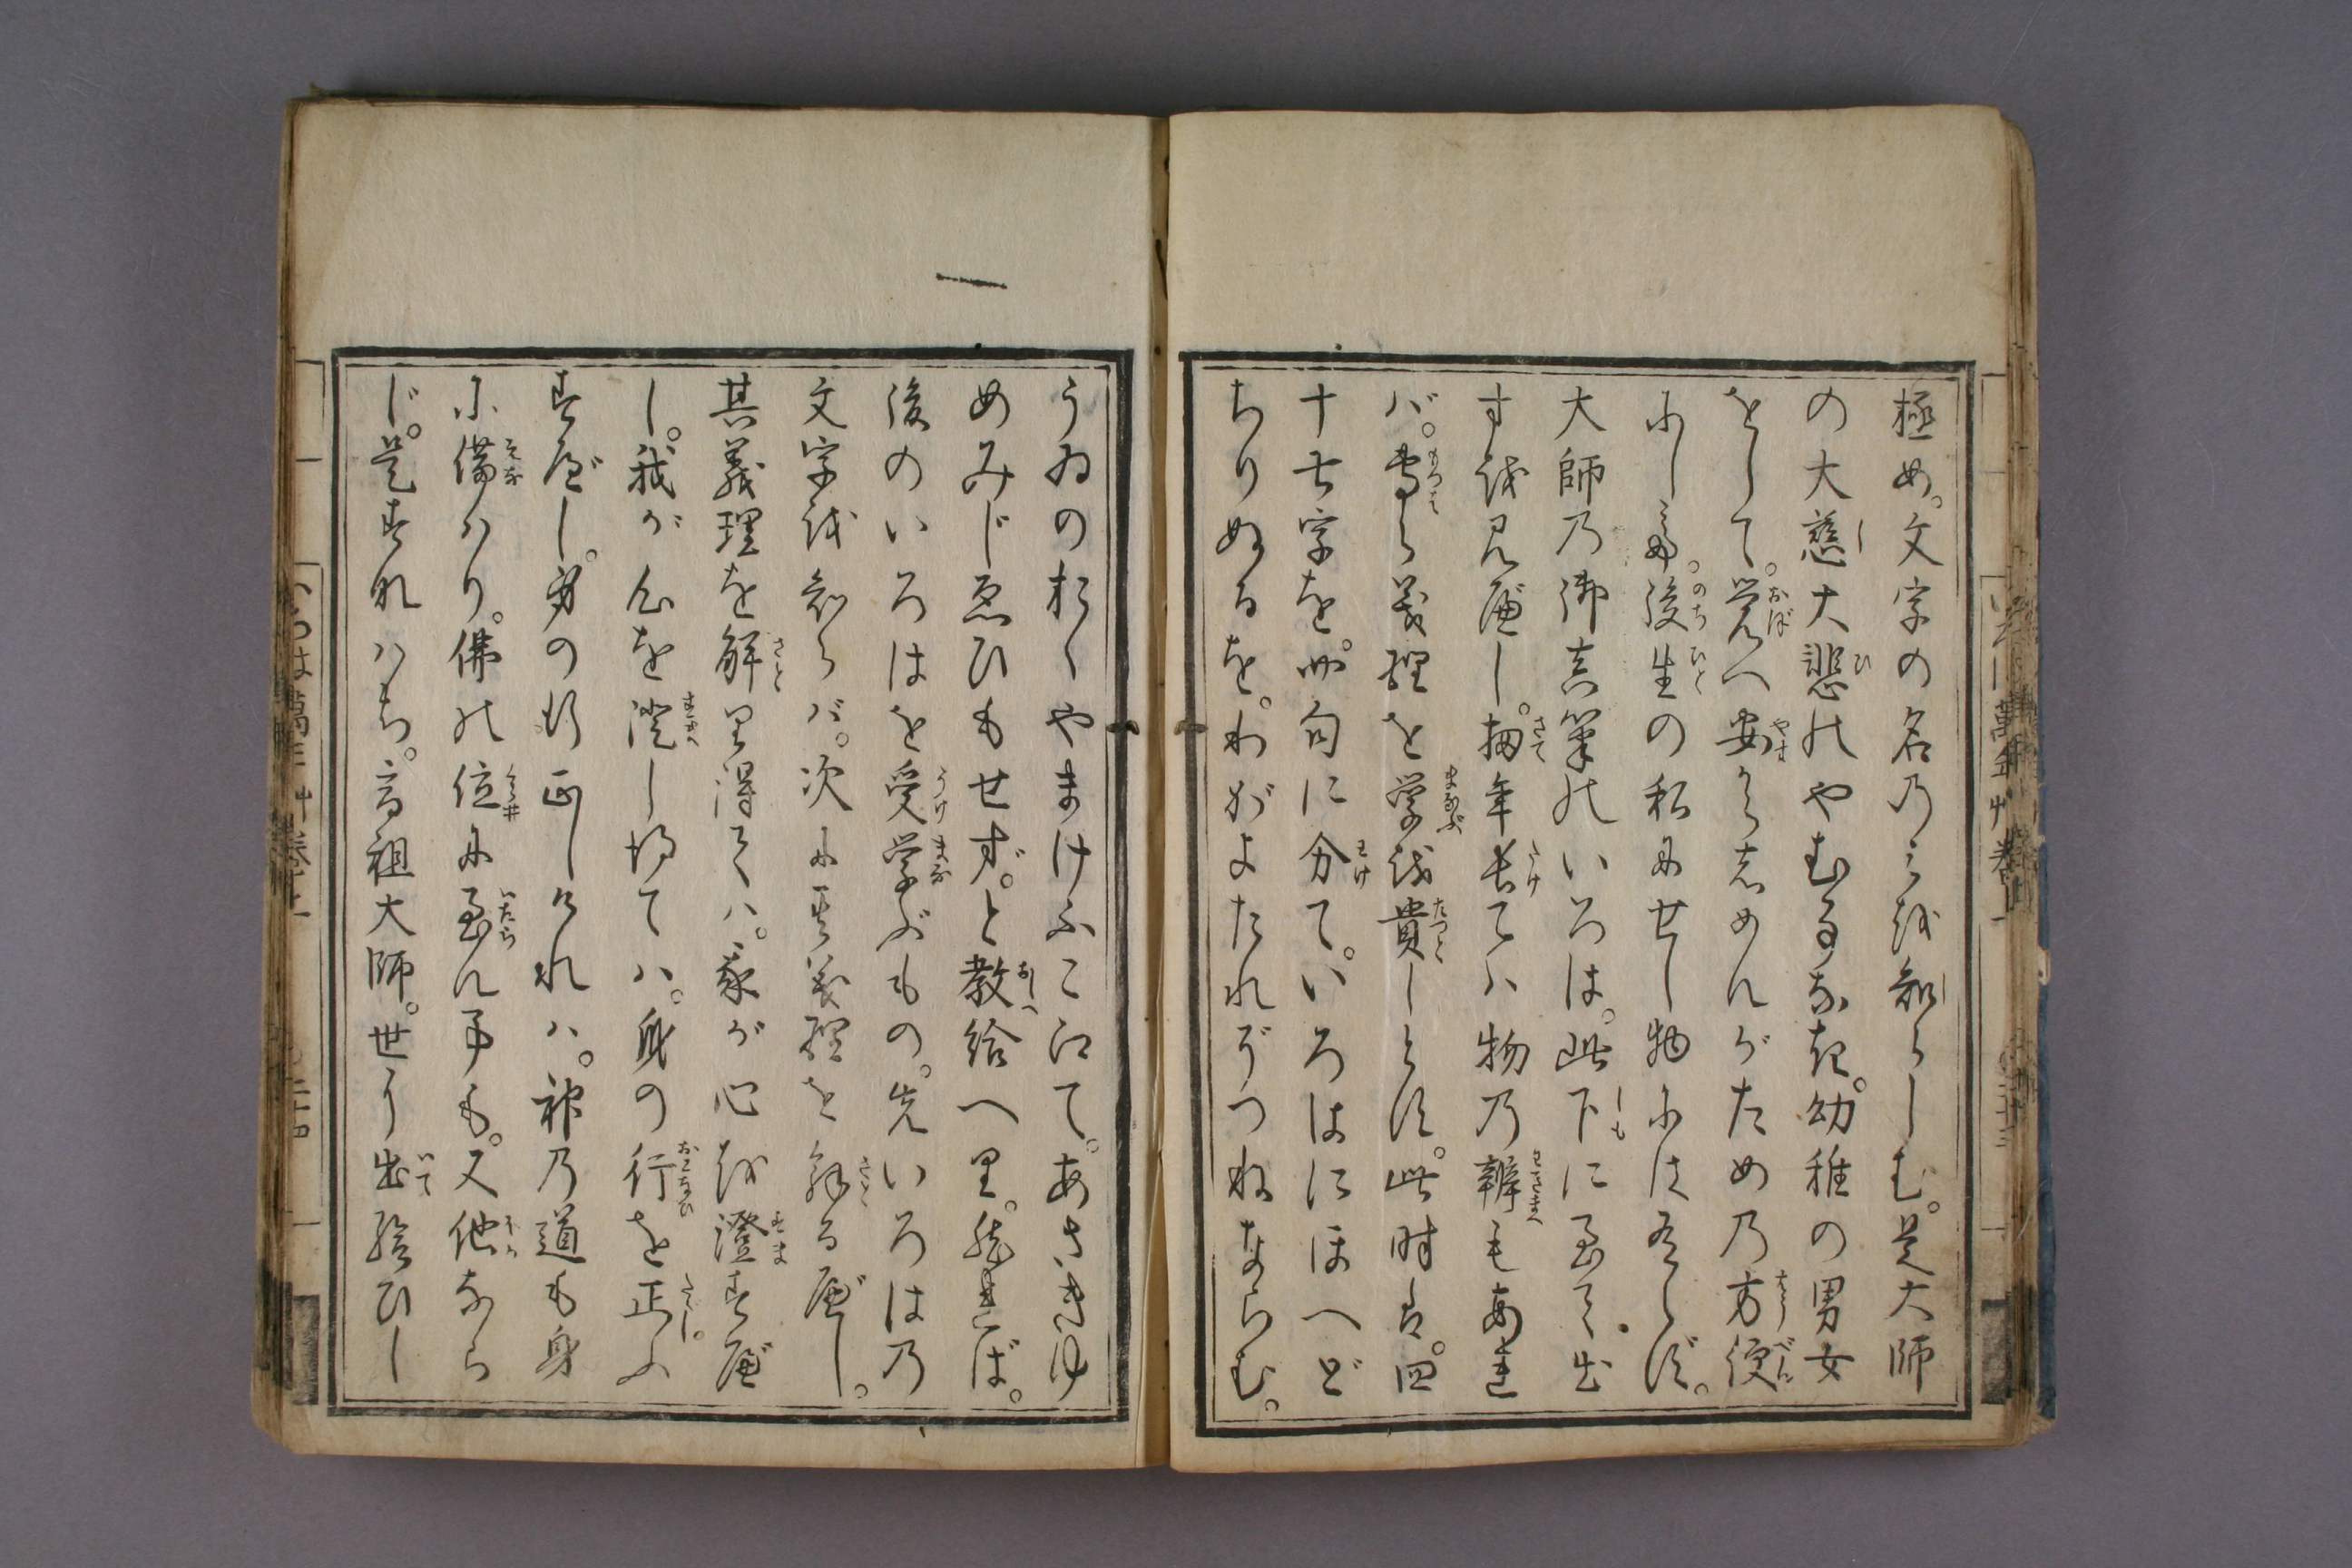 極め。文字の名乃ミを知らしむ。是大師
の大慈大悲のやむ事なき。幼稚の男女
をして。覚へ安からしめんがため乃方便
にして。後生の私にせし物にはあらず。
大師乃御真筆のいろは。此下に至て出
すを見べし。扨年長てハ物乃辨もあれ
バ。専ら義理を学を貴しとす。此時は。四
十七字を。四句に分て。いろはにほへど
ちりぬるを。わがよたれぞつねならむ。
うゐのおくやまけふこえて。あさきゆ
めみじゑひもせず。と教給へり。然れば。
後のいろはを受学ぶもの。先いろは乃
文字を知らバ。次に其義理を解るべし。
其義理を解り得てハ。我が心を澄すべ
し。我が心を澄し得てハ。身の行を正ふ
すべし。身の行正しけれハ。神乃道も身
に備ハり。佛の位に至ん事も。又他なら
じ。是すなハち。高祖大師。世に出給ひし